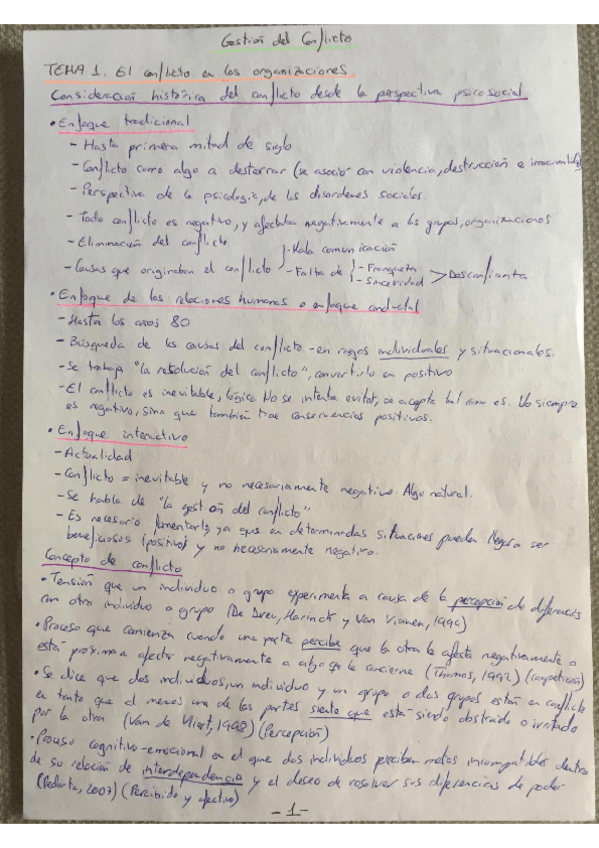 Gestión del Conflicto
TEMA 1. El conflicto en las organizaciones.
Consideración histórica del conflicto desde la perspectiva psicosocial
• Enfoque tradicional
- Hasta primera mitad de siglo
- Conflicto como algo a desterrar (se asoció con violencia, destrucción e irracionalidad)
- Perspectiva de la psicología, de los disordenes sociales.
- Todo conflicto es negativo, y afectaba negativamente a los grupos, organizaciones
- Eliminación del conflicto
- Causas que originaban el conflicto } - Mala comunicación
- Falta de { - Franqueza - Sinceridad > Desconfianza
• Enfoque de las relaciones humanas o enfoque conductal
- Hasta los años 80
- Búsqueda de las causas del conflicto - en rasgos individuales y situacionales.
- Se trabaja "la resolución del conflicto", convertirlo en positivo
- El conflicto es inevitable, lógico. No se intenta evitar, se acepta tal como es. No siempre
es negativo, sino que también trae consecuencias positivas.
• Enfoque interactivo
- Actualidad
- Conflicto = inevitable y no necesariamente negativo. Algo natural.
- Se habla de "la gestión del conflicto"
- Es necesario fomentarlo, ya que en determinadas situaciones pueden llegar a ser
beneficiosos (positivo) y no necesariamente negativo.
Concepto de conflicto
• Tensión que un individuo o grupo experimenta a causa de la percepción de diferencias
con otro individuo o grupo (De Dreu, Harinck y Van Vianen, 1999)
• Proceso que comienza cuando una parte percibe que la otra la afecta negativamente o
está próxima a afectar negativamente a algo que le concierne (Thomas, 1992) (competición)
• Se dice que dos individuos, un individuo y un grupo o dos grupos están en conflicto
en tanto que al menos una de las partes siente que está siendo obstruido o irritado
por la otra (Van de Vliert, 1998) (Percepción)
• Proceso cognitivo-emocional en el que dos individuos perciben metas incompatibles dentro
de su relación de interdependencia y el deseo de resolver sus diferencias de poder
(Redorta, 2007) (Percibido y afectivo)
- 1 -